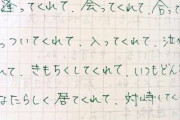 逢ってくれて、会ってくれて、合って
っついてくれて、入ってくれて、
べて、きもちくしてくれて、いつもどん
なたらしく居てくれて、対峙してく